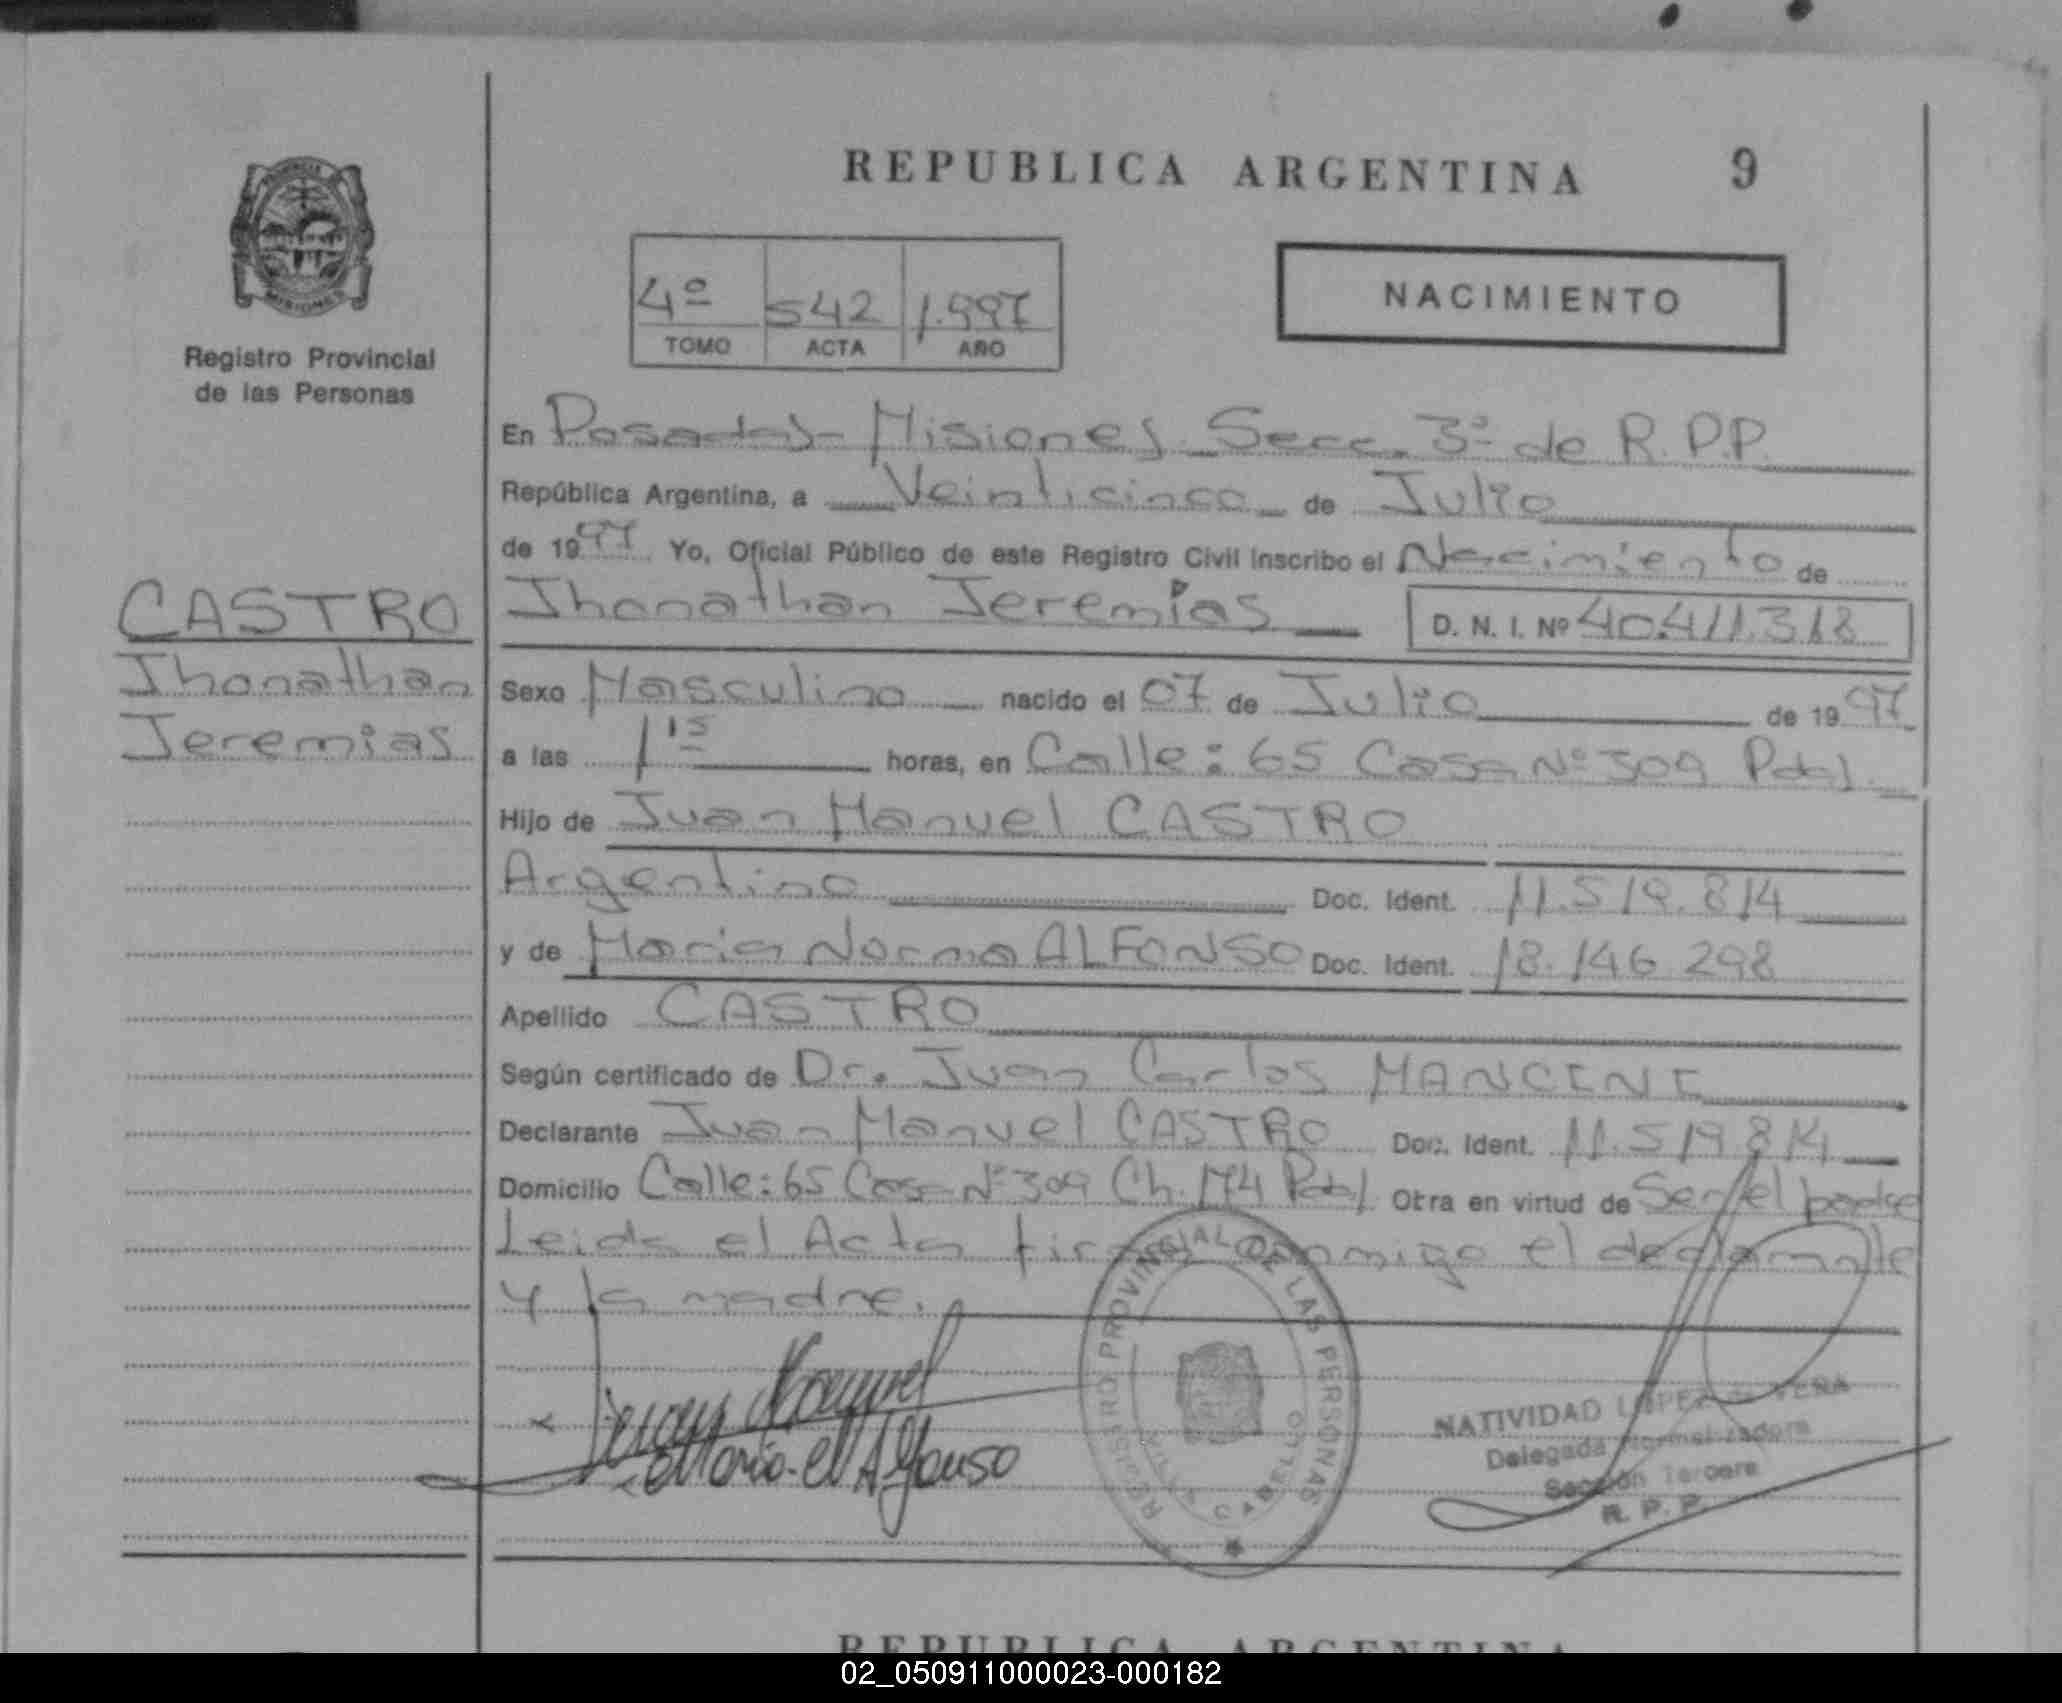 REPUBLICA ARGENTINA 9
MISIONES
Registro Provincial
de las Personas
4º 542 1.997
TOMO ACTA AÑO
NACIMIENTO
En Posadas - Misiones Secc. 3º de R.P.P.
República Argentina, a Veinticinco de Julio
de 1997 Yo, Oficial Público de este Registro Civil inscribo el Nacimiento de
CASTRO
Jhonathan
Jeremias
Jhonathan Jeremias D. N. I. Nº 40.411.318
Sexo Masculino nacido el 07 de Julio de 1997
a las 1 15 horas, en Calle: 65 Casa Nº 309 Pdas.
Hijo de Juan Manuel CASTRO
Argentino Doc. Ident. 11.519.814
y de Maria Norma ALFONSO Doc. Ident. 18.146.298
Apellido CASTRO
Según certificado de Dr. Juan Carlos MANCINI
Declarante Juan Manuel CASTRO Doc. Ident. 11.519.814
Domicilio Calle: 65 Casa Nº 309 Ch. 174 Pdas. Otra en virtud de Ser el padre
Leida el Acta firman conmigo el declarante
y la madre.
REGISTRO PROVINCIAL DE LAS PERSONAS
VILLA CABELLO
Alfonso
NATIVIDAD LOPEZ de VERA
Delegada Normalizadora
Sección Tercera
R. P. P.
REPUBLICA ARGENTINA
02_050911000023-000182